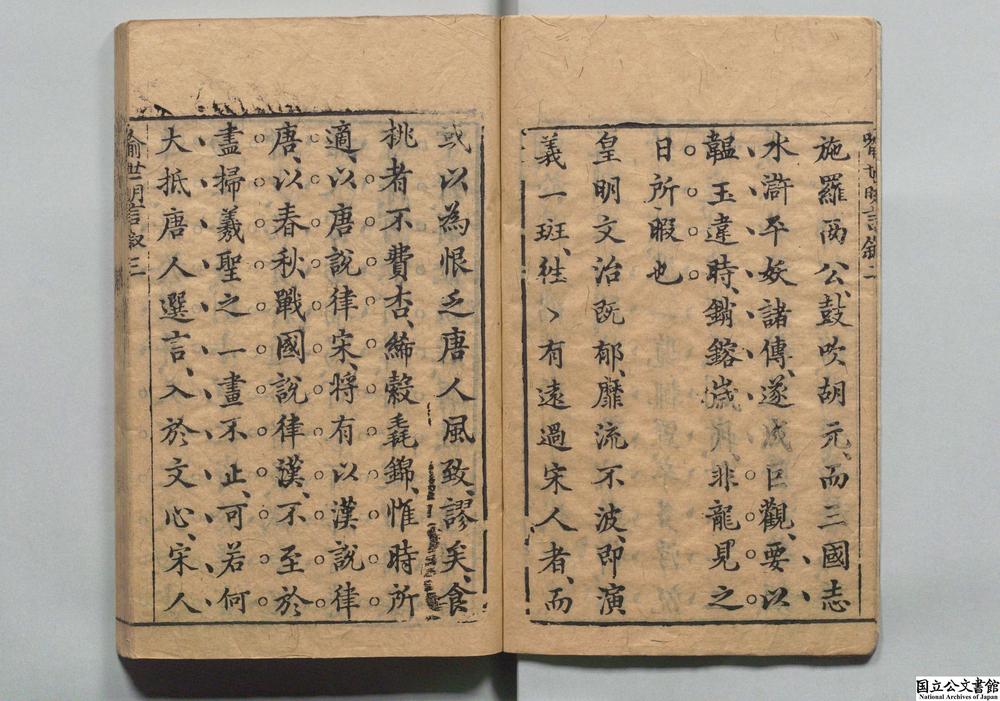 喻世明言叙二
施羅兩公、鼓吹胡元、而三國志
水滸平妖諸傳、遂成巨觀、要以
韞玉違時、銷鎔歲月、非龍見之
日所暇也
皇明文治既郁、靡流不波、即演
義一斑、往〻有遠過宋人者、而
或以為恨乏唐人風致、謬矣、食
桃者不費杏、絺縠毳錦、惟時所
適、以唐說律宋、將有以漢說律
唐、以春秋戰國說律漢、不至於
盡掃羲聖之一畫不止、可若何
大抵唐人選言、入於文心、宋人
喻世明言叙三
国立公文書館
National Archives of Japan